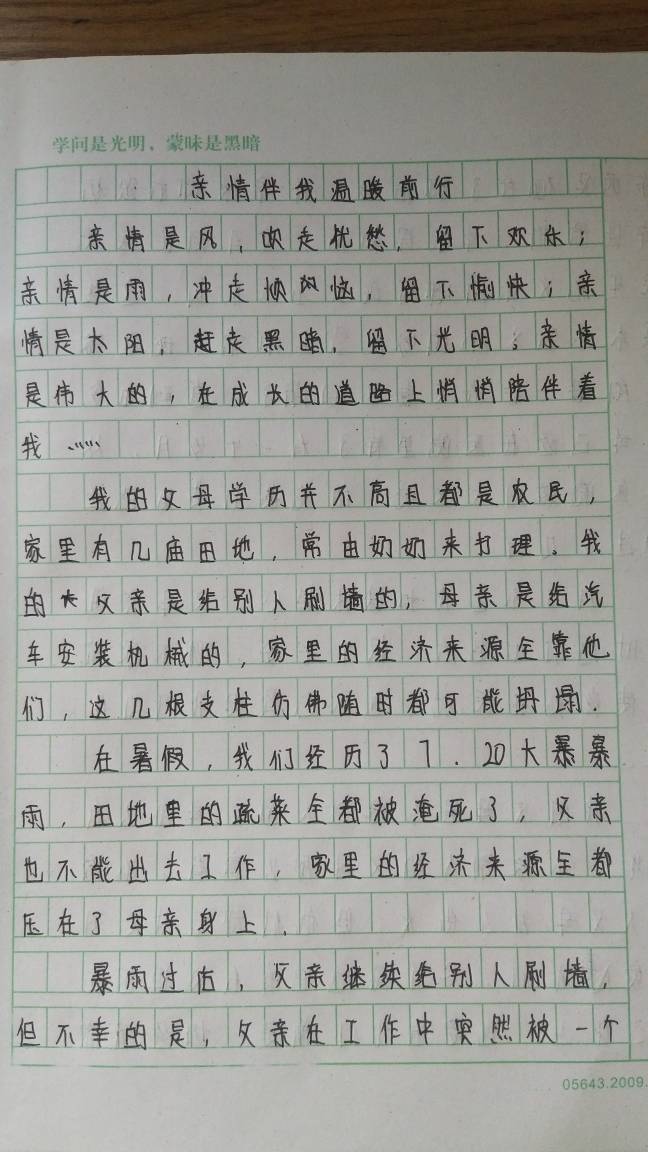 学问是光明，蒙昧是黑暗
亲情伴我温暖前行
亲情是风，吹走忧愁，留下欢乐；
亲情是雨，冲走烦恼，留下愉快；亲
情是太阳，赶走黑暗，留下光明；亲情
是伟大的，在成长的道路上悄悄陪伴着
我……
我的父母学历并不高且都是农民，
家里有几亩田地，常由奶奶来打理。我
的父亲是给别人刷墙的，母亲是给汽
车安装机械的，家里的经济来源全靠他
们，这几根支柱仿佛随时都可能坍塌.
在暑假，我们经历了7.20大暴
雨，田地里的蔬菜全都被淹死了，父亲
也不能出去工作，家里的经济来源全都
压在了母亲身上.
暴雨过后，父亲继续给别人刷墙，
但不幸的是，父亲在工作中突然被一个
05643.2009.